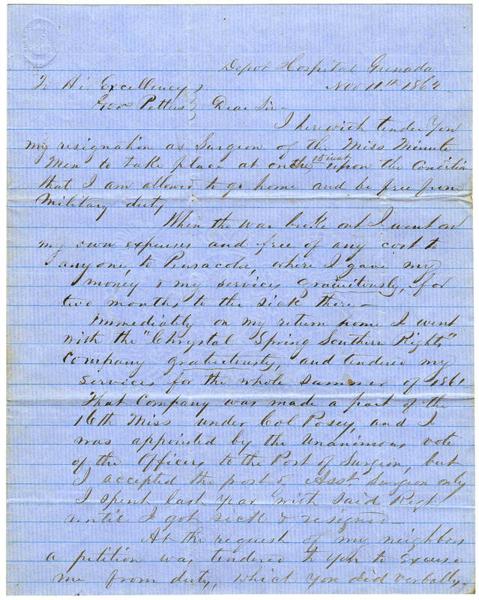 Depot Hospital Grenada
Nov 11th 1862
To His Excellency
Gov Pettus Dear Sir
I herewith tender you
my resignation as Surgeon of the Miss Minute
Men to take place at once upon the Condition
that I am allowed to go home and be free from
Military duty
When the war broke out I went on
my own expenses and free of any cost to
anyone to Pensacola, where I gave my
money & my services gratuitously, for
two months to the sick there—
Immediately on my return home I went
with the "Chrystal Spring Southern Rights"
Company gratuitously, and tendered my
services for the whole Summer of 1861
That Company was made a part of the
16th Miss under Col Posey, and I
was appointed by the Unanimous vote
of the Officers to the Post of Surgeon, but
I accepted the post of Asst Surgeon only
I spent last year with said Regt
until I got sick & resigned—
At the request of my neighbors
a petition was tendered to you to excuse
me from duty, which you did verbally.